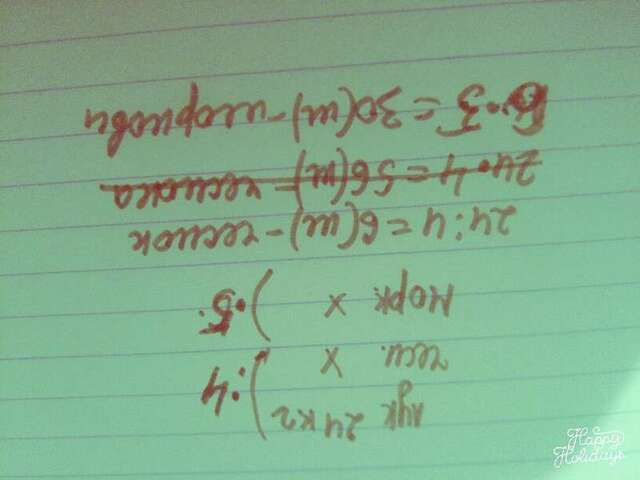 Лук 24 кг :4
чесн. x
Морк. x ·5.
24:4=6(м)-чеснок
24·4=56(м)-чеснока
6·5=30(м)-моркови
Happy
Holidays